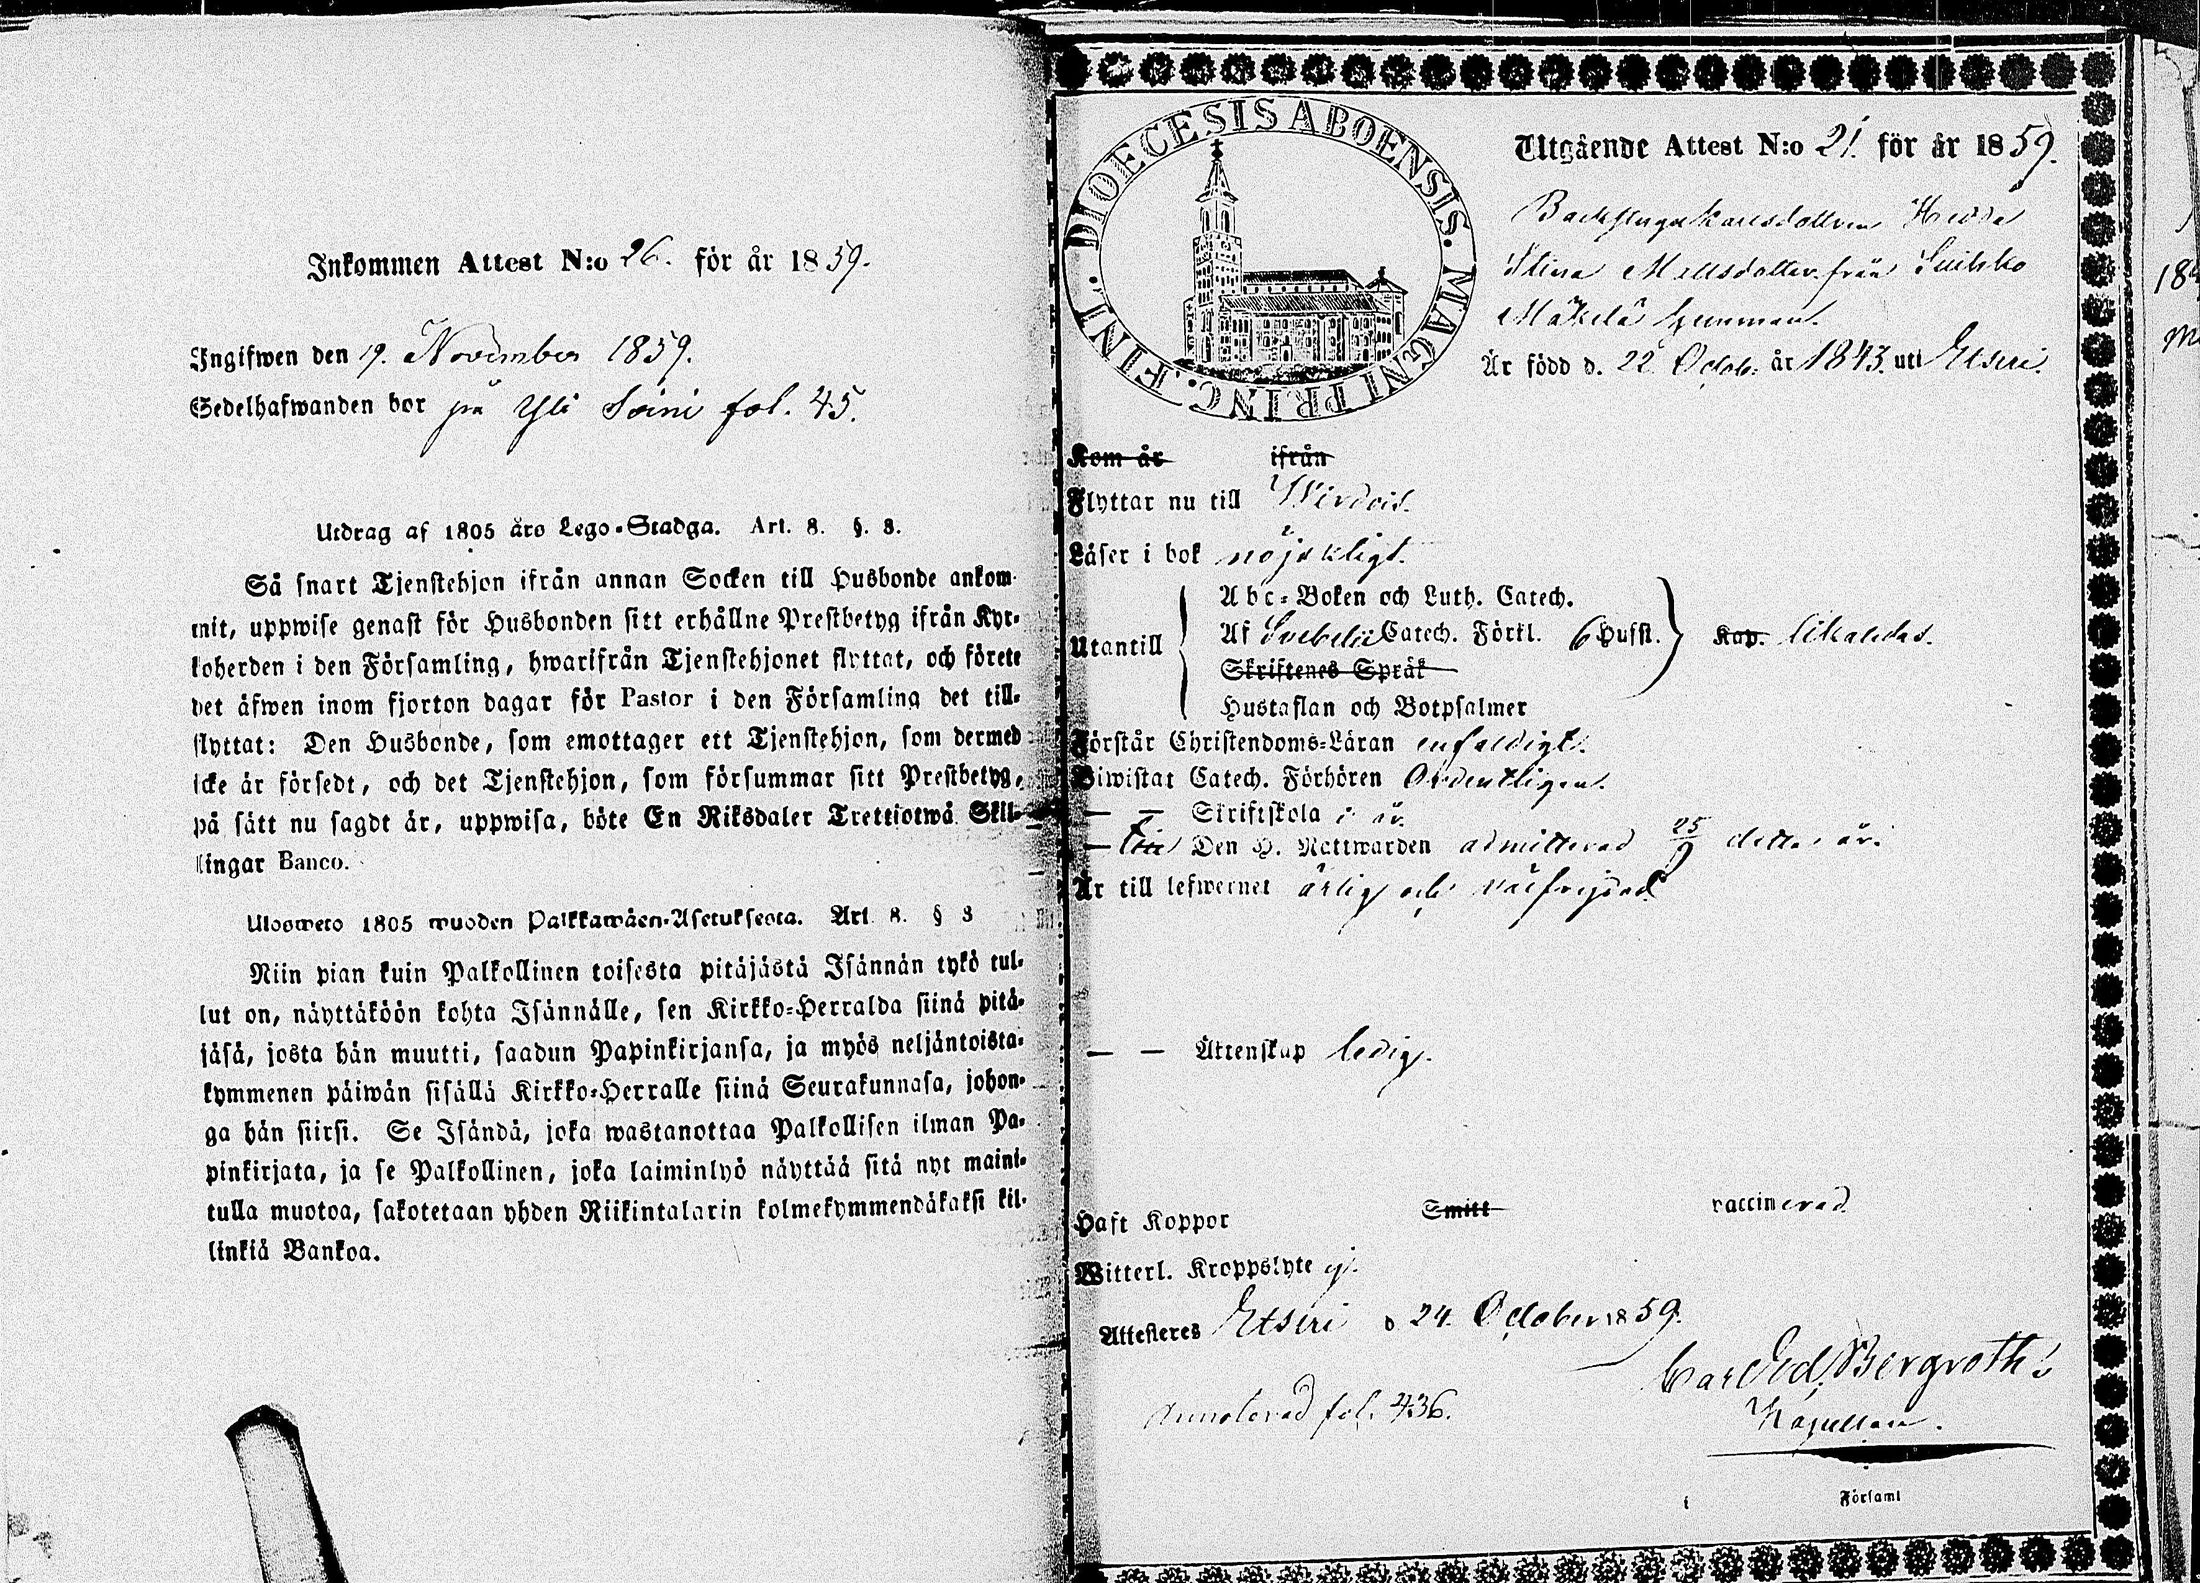 Inkommen Attest N:o 26. för år 1859.
Ingifwen den 19. November 1859.
Sedelhafwanden bor på Yli Soini fol. 45.
Utdrag af 1805 års Lego-Stadga. Art. 8. §. 3.
Så snart Tjenstehjon ifrån annan Socken till Husbonde ankom-
mit, uppwise genast för Husbonden sitt erhållne Prestbetyg ifrån Kyr-
koherden i den Församling, hwarifrån Tjenstehjonet flyttat, och förete
det äfwen inom fjorton dagar för Pastor i den Församling det till-
flyttat: Den Husbonde, som emottager ett Tjenstehjon, som dermed
icke är försedt, och det Tjenstehjon, som försummar sitt Prestbetyg,
på sätt nu sagdt är, uppwisa, böte En Riksdaler Trettiotwå Skil-
lingar Banco.
Ulosweto 1805 wuoden Palkkawäen-Asetuksesta. Art. 8. § 3
Niin pian kuin Palkollinen toisesta pitäjästä Isännän tykö tul-
lut on, näyttäköön kohta Isännälle, sen Kirkko-Herralda siinä pitä-
jäsä, josta hän muutti, saadun Papinkirjansa, ja myös neljäntoista-
kymmenen päiwän sisällä Kirkko-Herralle siinä Seurakunnasa, johon-
ga hän siirsi. Se Isändä, joka wastanottaa Palkollisen ilman Pa-
pinkirjata, ja se Palkollinen, joka laiminlyö näyttää sitä nyt maini-
tulla muotoa, sakotetaan yhden Riikintalarin kolmekymmendäkaksi kil-
linkiä Bankoa.
DIOECESIS ABOENSIS. MAGNI PRINC. FINL.
Utgående Attest N:o 21. för år 1859.
Hedda
Stina Mattsdotter från
Mäkelä hemman.
Är född d. 22 Octob. år 1843 uti Etseri.
Kom år ifrån
Flyttar nu till Wirdois.
Läser i bok nöjakligt.
Utantill
Abc-Boken och Luth. Catech.
Af Svebelii Catech. Förkl. 6 Hufst. Kap.
Skriftenes Språk
Hustaflan och Botpsalmer
Förstår Christendoms-Läran enfaldigt.
Biwistat Catech. Förhören Ordentligen.
— — Skriftskola i år
— Till Den H. Nattwarden admitterad 25/9 detta år.
Är till lefwernet ärlig och välfrejdad
— — Äktenskap ledig.
Haft Koppor Smitt vaccinerad.
Witterl. Kroppslyte ej.
Attesteres Etseri d 24. October 1859.
Carl Ed. Bergroth
Kapellan.
Annoterad fol. 436.
i Församl